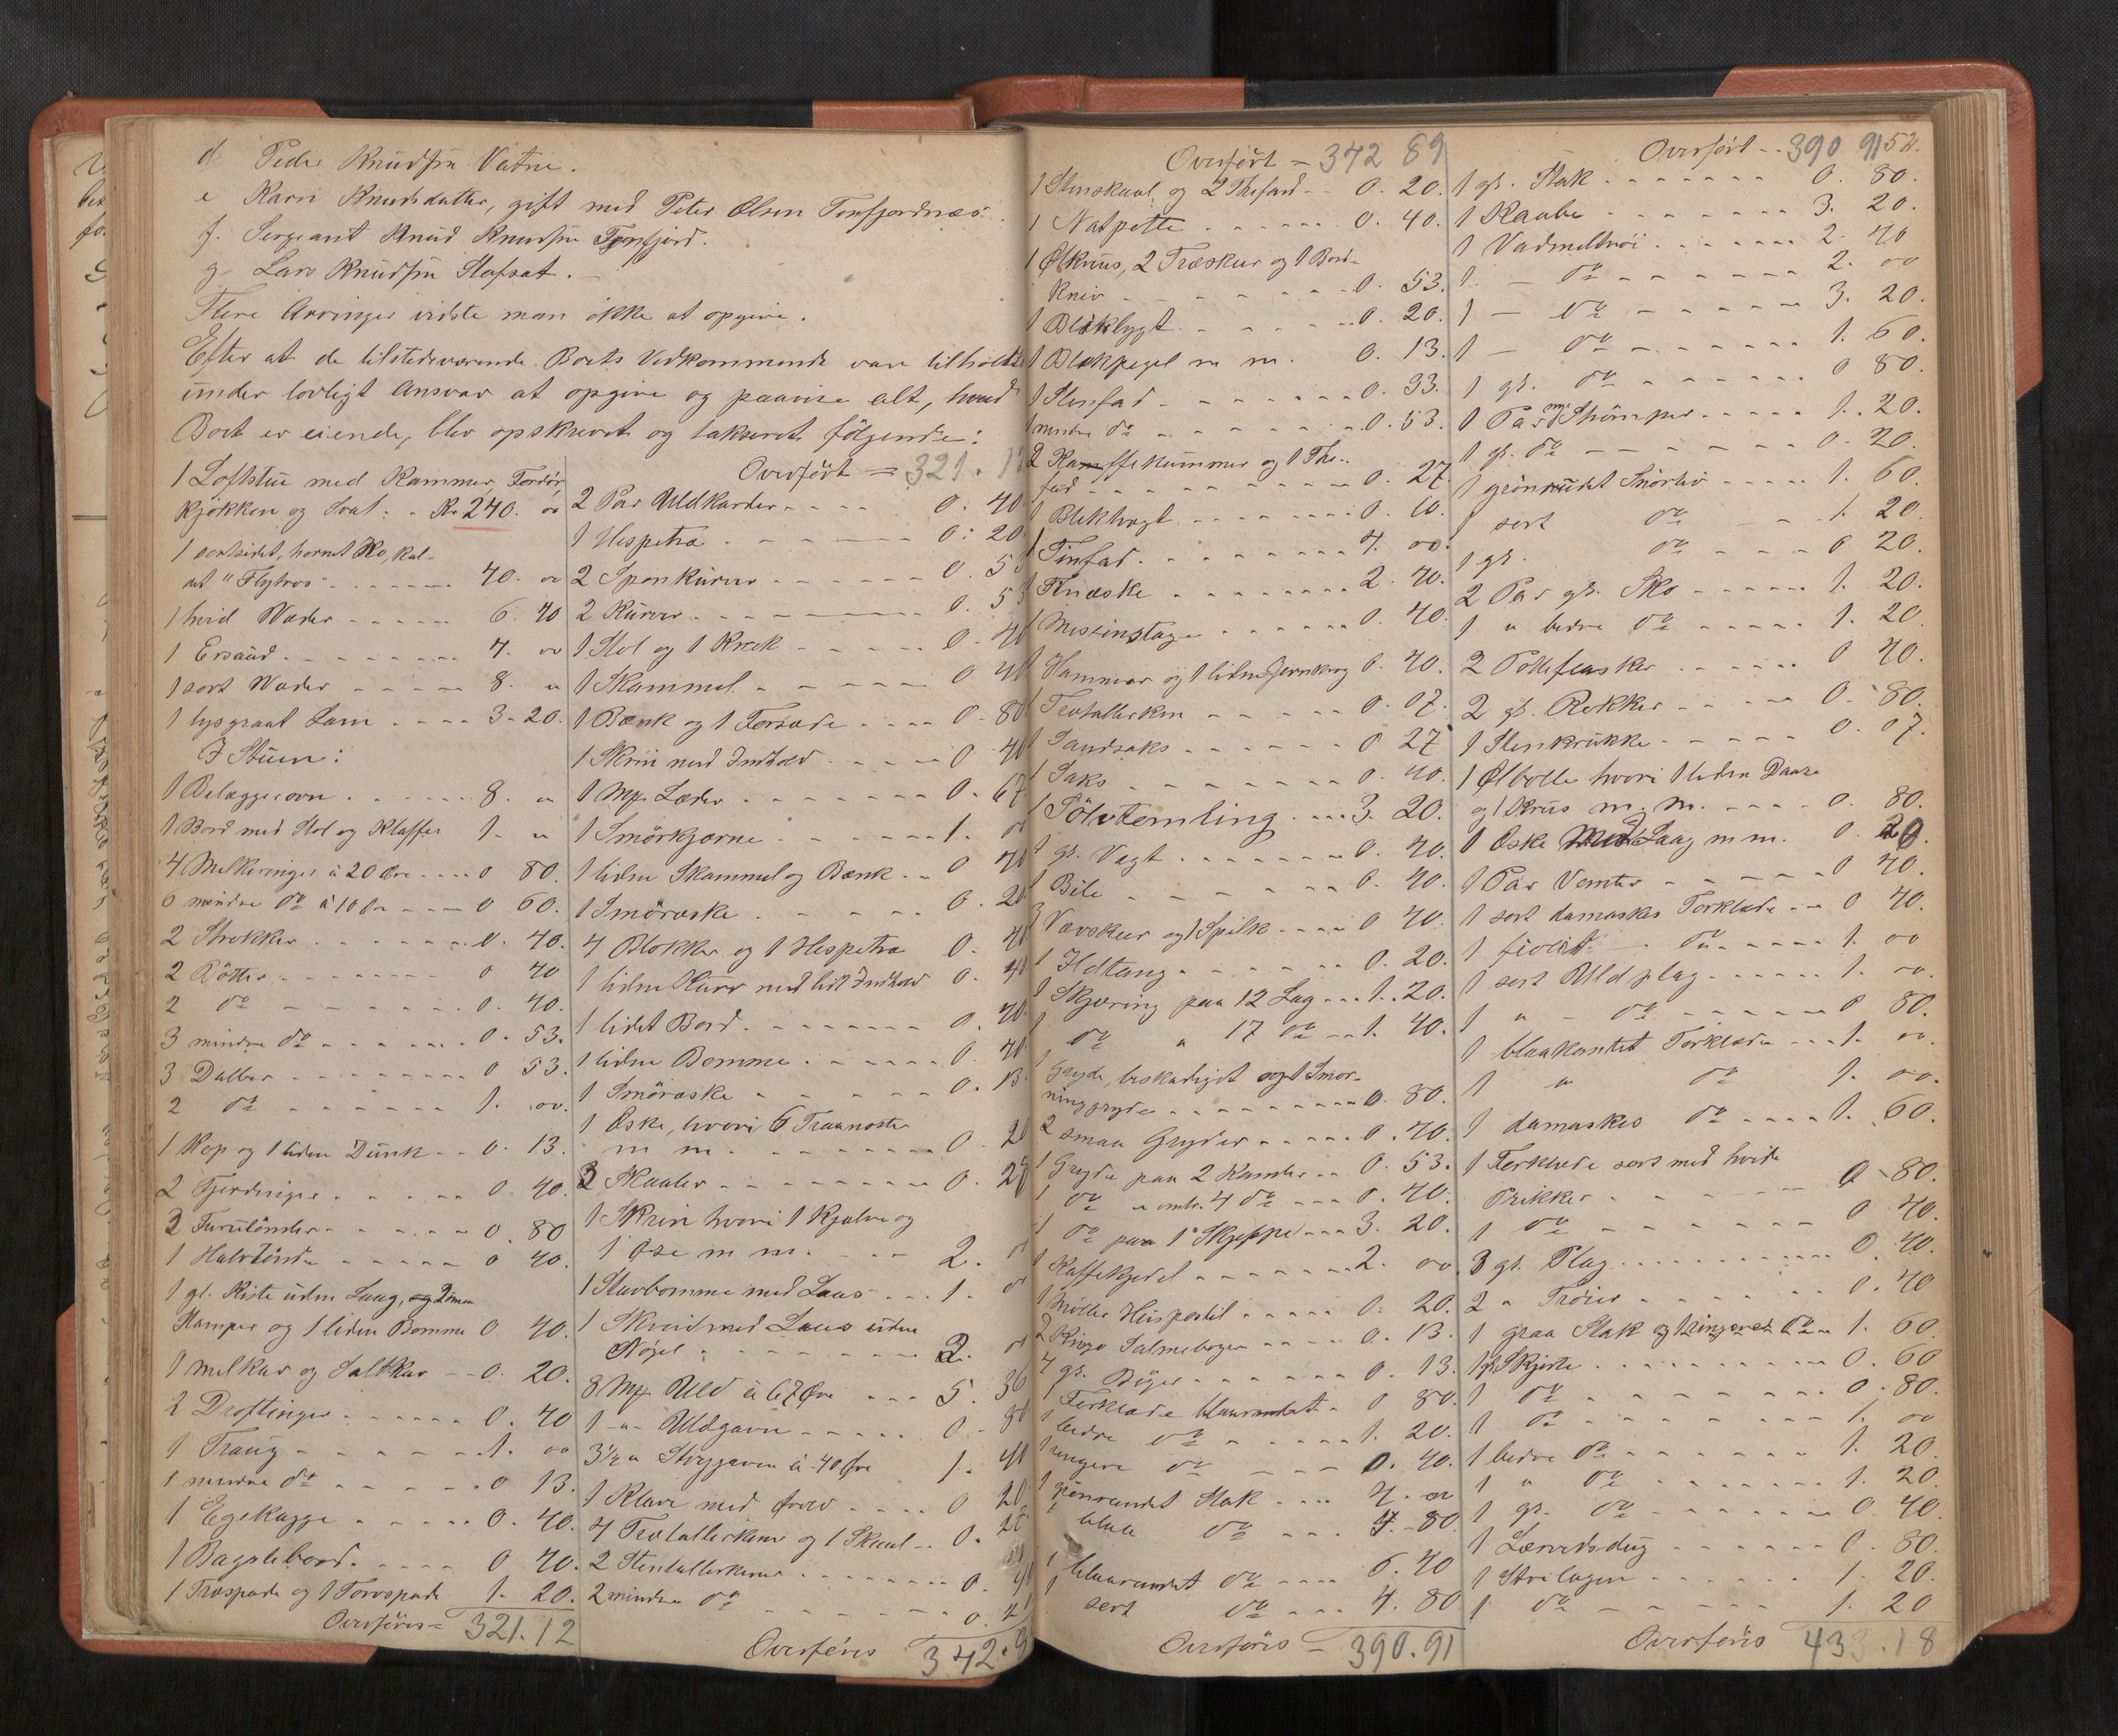 d. Peder Knudsen Vatne.
e Karn Knudsdatter, gift med Peter Olsen Tenfjordnæs.
f. Sergeant Knud Knudsen Tenfjord.
g Lars Knudsen Slafsat.
Flere Arvinger vidste man ikke at opgive.
Efter at de tilstedeværende Boets Vedkommende vare tilholdte
under lovligt Ansvar at opgive og paavise alt, hvad
Boet er eiende, blev opskrevet og takseret følgende:
1 Loftstue med Kammer, Fordør,
Kjøkken og Sval. - Kr 240. 00
1 sortsidet, hornet Ko, kal-
det "Flytros" 40. 00
1 hvid Væder 6. 40
1 Ersaud 4. 00
1 sort Væder 8. "
1 lysgraat Lam 3. 20.
I Stuen:
1 Belæggerovn 8. "
1 Bord med Stol og Klaffer 1. "
4 Melkeringer à 20 Øre 0 80.
6 mindre do à 10 Øre 0 60.
2 Strokker 0. 40.
2 Bøtter 0 40
2 do 0. 40.
3 mindre do 0. 53.
3 Daller 0 53.
2 do 1. 00.
1 Kop og 1 liden Dunk 0. 13.
2 Fjerdinger 0. 40.
2 Furutønder 0. 80
1 Halvtønde 0 40.
1 gl. Kiste uden Laag, og 2 smaa
Stamper og 1 liden Bomme 0 40.
1 Melkar og Saltkar 0. 20.
2 Drøftinger 0. 40
1 Traug 1. 00
1 mindre do 0 13.
1 Egekagge 0. 40.
1 Bagstebord 0. 40.
1 Træspade og 1 Torvspade 1. 20.
Overføres = 321.12
Overført = 321.12
2 Par Uldkarder 0. 40
1 Hespetræ 0. 20
2 Sponkurver 0. 53
2 Kurver 0. 53
1 Stol og 1 Krak 0. 40
1 Skammel 0 40
1 Bænk og 1 Forsæde 0. 80
1 Skrin med Indhold 0 40
1 Mp. Læder 0. 67
1 Smørkjærne 1. 00
1 liden Skammel og Bænk 0 40
1 Smøræske 0. 20
4 Blokker og 1 Hespetræ 0. 40
1 liden Kurv med lidt Indhold 0. 40
1 lidet Bord 0. 40
1 liden Bomme 0. 40
1 Smøræske 0. 13.
1 Æske, hvori 6 Traanoster
m m. 0. 20
2 Skaaler 0. 28
1 Skrin hvori 1 Kjelve og
1 Øse m m. 2.
1 Stavbomme med Laas 1. 0
1 Skrin med Laas uden
Nøgel 2.
8 Mp. Uld à 67 Øre 5. 36
1 " Uldgarn 0. 80
3½ " Strygarn à 40 Øre 1. 40
1 Klave med Ører 0 20
4 Trætallerkener og 1 Skaal 0.
2 Stentallerkener 0. 40
2 mindre do 0.
Overføres 342.
Overført = 342 89
1 Stenskaal og 2 Thefad 0. 20.
1 Natpotte 0. 40.
1 Ølkrus, 2 Træskeer og 1 Bord-
kniv 0. 53.
1 Bliklygt 0. 20.
1 Blikpegel m m. 0. 13.
1 Stenfad 0. 93.
1 mindre do 0. 53.
2 Kaffekummer og 1 The-
fad 0. 27.
1 Blikbragt 0. 10.
1 Tinfad 4. 00.
1 Knæske 2. 40.
1 Messingstage 0. 40.
1 Hammer og 1 liden Jernkrog 0. 40.
1 Trætallerken 0. 07.
1 Saudsaks 0 27
1 Saks 0. 40.
1 Sølvtemling 3. 20.
1 gl. Vægt 0. 40.
1 Bile 0. 40.
3 Vævskeer og 1 Spilk 0 40.
1 Ildtang 0. 20.
1 Skjæring paa 12 Lag 1. 20.
1 do " 17 do 1. 40.
1 Gryde, beskadiget og 1 Smør-
ninggryde 0. 80.
2 smaa Gryder 0. 40.
1 Gryde paa 2 Kander 0. 53.
1 do " omtr. 4 do 0. 40.
1 do paa 1 Skjeppe 3. 20.
1 Kaffekjedel 2. 00.
1 Møllers Huspostil 0. 20.
2 Kingo Salmebøger 0. 13.
4 gl. Bøger 0. 13.
1 Forklæde blaarandet 0 80.
1 bedre do 1. 20.
1 ringere do 0. 40.
1 grønrandet Stak 4. 00
1 blaa do 4. 80
1 blaarandet do 6. 40
1 sort do 4. 80
Overføres = 390.91
Overført 390 91 52.
1 gl. Stak 0. 80.
1 Kaabe 3. 20.
1 Vadmelstrøi 2. 40
1 - do 2. 00
1 - do 3. 20.
1 - do 1. 60.
1 gl. do 0 80.
1 Par ny Strømper 1. 20.
1 gl. do 0. 20.
1 grønrudet Snørliv 1. 60.
1 sort do 1. 20
1 gl. do 0 20.
2 Par gl. Sko 1. 20.
1 " bedre do 1. 20.
2 Potteflasker 0 40.
2 gl. Rokker 0. 80.
1 Stenkrukke 0. 07.
1 Ølbolle hvori 1 liden Daase
og 1 Krus m. m. 0. 80.
1 Æske med Laag m m. 0. 20.
1 Par Vømter 0 40.
1 sort damaskes Forklæde 0 40.
1 do 1. 00
1 sort Uldplag 1. 00.
1 " - do 0 80.
1 blaakantet Forklæde 1. 00.
1 " do 1. 00.
1 damaskes do 1. 60.
1 Forklæde sort med hvide
Prikker 0. 80.
1 do 0 40.
3 gl. Plag 0. 40.
2 " Trøier 0. 40
1 graa Stak og 1 ringere do 1. 60.
1 gl. Skjorte 0. 60
1 do 0. 80.
1 do 1. 00
1 bedre do 1. 20.
1 " do 1. 20
1 gl. do 0 40.
1 Lærredsdug 0. 80.
1 Strilagen 1. 20.
1 do 1. 20
Overføres 433.18